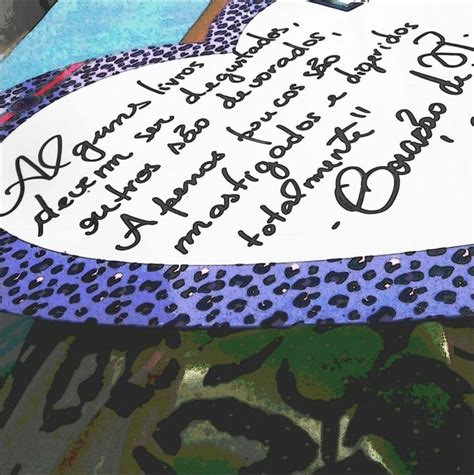 Alguns livros
devem ser degustados,
outros são devorados,
Apenas poucos são
mastigados e digeridos
totalmente!!
Coração de P.